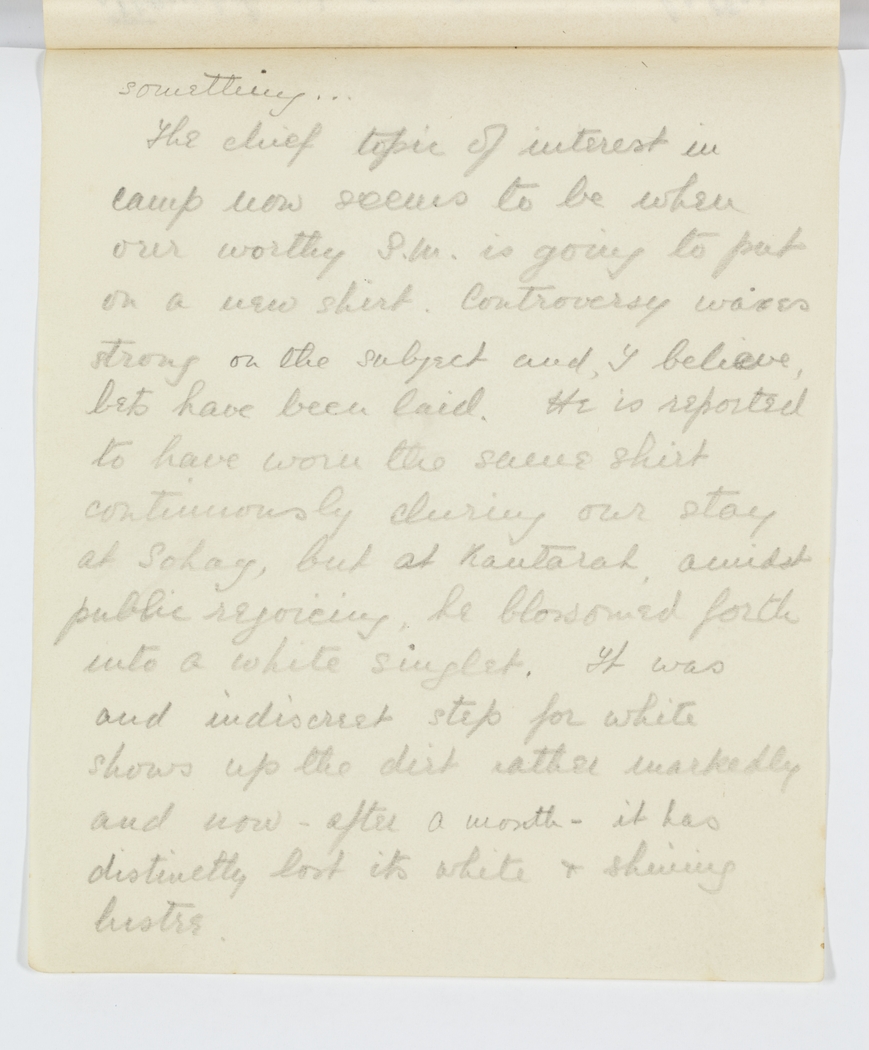 something...
The chief topic of interest in
camp now seems to be when
our worthy S.M. is going to put
on a new shirt. Controversy waxes
strong on the subject and, I believe,
bets have been laid. He is reported
to have worn the same shirt
continuously during our stay
at Sohag, but at Kantarah, amidst
public rejoicing, he blossomed forth
into a white singlet. It was
and indiscreet step for white
shows up the dirt rather markedly
and now - after a month - it has
distinctly lost its white & shining
lustre.